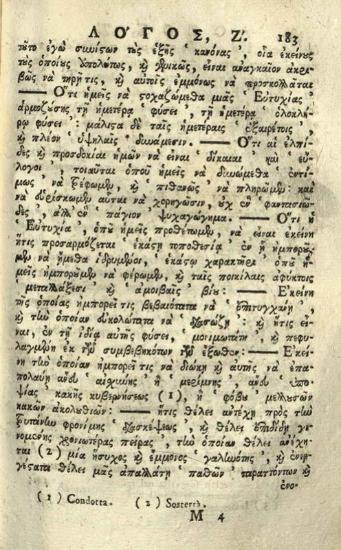 ΛΟΓΟΣ, Ζ. 183
τῦτο ἐγὼ συνίσων τὺς ἑξῆς κανόνας, οἷα ἐκείνυς
τὺς ὁποίυς ὑπολύπως, κ̀ εἶναι ἀναγκαῖον ἀκρι-
βῶς νὰ τηρῆτις, κ̀ αὐτοῖς ἐμμόνως νὰ προσκολλᾶται
—— Ὅτι ἡμεῖς νὰ ςοχαζώμεθα μιᾶς Εὐτυχίας
ἁρμοζύσης τῇ ἡμετέρᾳ φύσει, τῇ ἡμετέρᾳ ὁλοκλή-
ρῳ φύσει: μάλιςα δὲ ταῖς ἡμετέραις ἐξαιρέτοις,
κ̀ πλέον ὑψηλαῖς δυνάμεσιν. —— Ὅτι αἱ ἐλπί-
δες κ̀ προσδοκίαι ἡμῶν νὰ εἶναι δίκαιαι καὶ εὔ-
λογοι, τοιαῦται ὁποῦ ἡμεῖς νὰ δυνώμεθα ἐντί-
μως νὰ τρέφωμεν, κ̀ πιθανῶς νὰ πληρῶμεν: καὶ
νὰ εὑρίσκωμεν αὐταὶ νὰ χορηγῶσιν, ὐχ̀ ἓν φαντασιῶ-
δες, ἀλλ' ἓν πάγιον ψυχαγώγημα. —— Ὅτι ἡ
Εὐτυχία, ὁπῦ ἡμεῖς προθέτωμεν, νὰ εἶναι ἐκείνη
ἥτις προσαρμόζεται ἑκάςῃ τοποθεσίᾳ ἐν ᾗ ἠμπορῦ-
μεν νὰ ἤμεθα ἱδρυμένοι, ἑκάςῳ χαρακτῆρι ὁπῦ ἡ-
μεῖς ἠμπορῦμεν νὰ φέρωμεν, κ̀ ταῖς ποικίλαις ἀφύκτοις
μεταλλάξεσι κ̀ ἀμοιβαῖς βίυ: —— Ἐκείνη
τῆς ὁποίας ἠμπορεῖ τις βεβαιότατα νὰ ἐπιτυγχάνῃ,
κ̀ τὴν ὁποίαν εὐκολώτατα νὰ διασώζῃ: κ̀ ἥτις εἶ-
ναι, ἐν τῇ ἰδίᾳ αὐτῆς φύσει, μονιμωτάτη κ̀ πεφυ-
λαγμένη ἐκ τῶν συμβεβηκότων τῶν ἔξωθεν: —— Ἐκεί-
νη τὴν ὁποίαν ἠμπορεῖ τις νὰ διώκῃ κ̀ αὐτῆς νὰ ἐπα-
πολαύῃ ἄνευ αἰσχύνης ἢ μερίμνης, ἄνευ ὑπο-
ψίας κακῆς κυβερνήσεως (1), ἢ φόβυ μελλυσῶν
κακῶν ἀκολυθιῶν: —— ἥτις θέλει ἀντέχῃ πρὸς τὴν
ἐξέτασιν φρονίμης διασκέψεως, κ̀ θέλει ἐπιδίδῃ γε-
νομένης χρονιωτέρας πείρας, τὴν ὁποίαν θέλει ἀνέχη-
ται (2) μία ἥσυχος κ̀ ἔμμονος γαλινότης, κ̀ ἐνερ-
γέςατα θέλει μᾶς ἀπαλλάττῃ παθῶν ταραττόντων κ̀
ἐνο-
(1) Condotta. (2) Sosterrà.
M 4